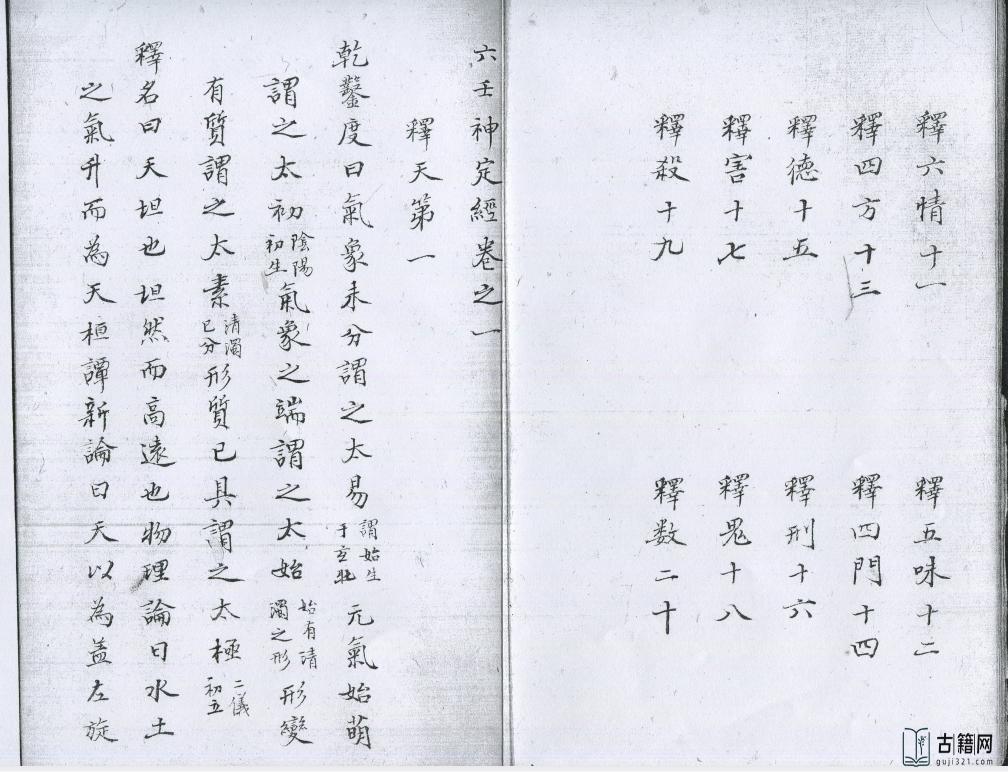 釋六情十一　釋五味十二
釋四方十三　釋四門十四
釋德十五　釋刑十六
釋害十七　釋鬼十八
釋殺十九　釋数二十
六壬神定經卷之一
釋天第一
乾鑿度曰氣象未分謂之太易謂始生于玄牝元氣始萌
謂之太初陰陽初生氣象之端謂之太始始有清濁之形形變
有質謂之太素清濁已分形質已具謂之太極二儀初五
釋名曰天坦也坦然而高遠也物理論曰水土
之氣升而為天桓譚新論曰天以為盖左旋
古籍网
guji321.com